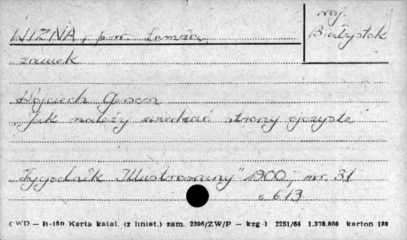 WIZNA, pow. Łomża
woj. Białystok
zamek
Wojciech Gerson
"Jak należy zwiedzać strony ojczyste"
"Tygodnik Illustrowany" 1900, nr. 31
s 613
CWD — B-15a Karta katal. (z liniat.) zam. 2396/ZW/P — kzg 1 2251/64 1.370.000 karton 180